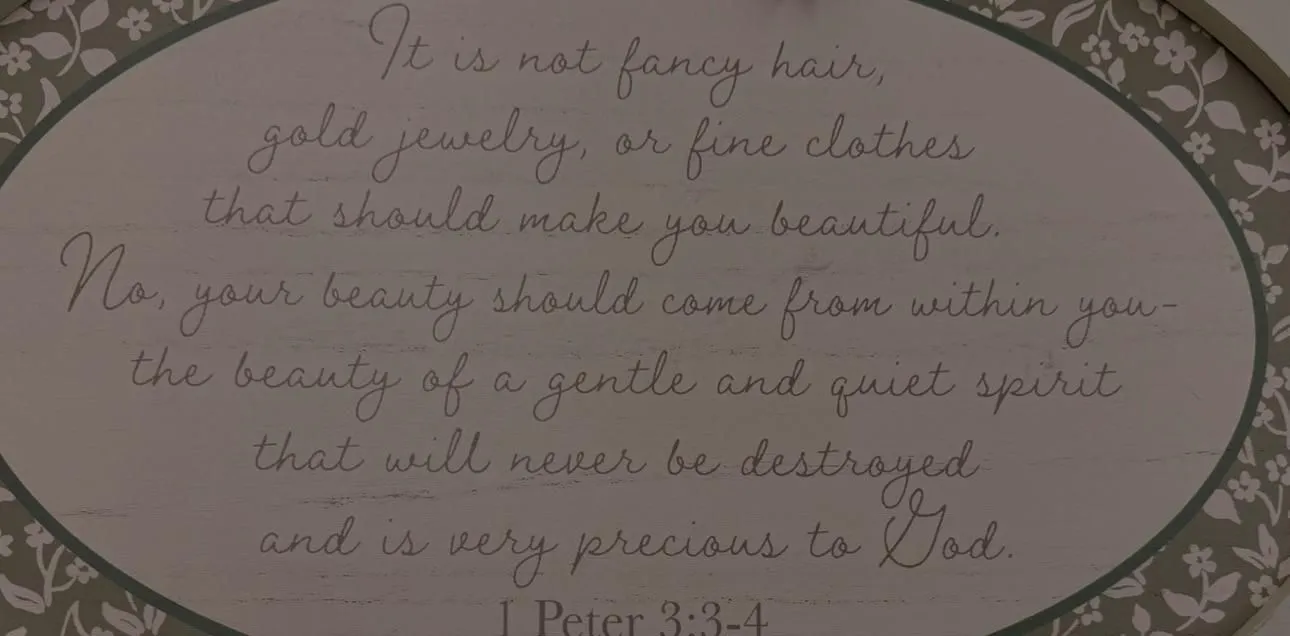 It is not fancy hair,
gold jewelry, or fine clothes
that should make you beautiful.
No, your beauty should come from within you-
the beauty of a gentle and quiet spirit
that will never be destroyed
and is very precious to God.
1 Peter 3:3-4